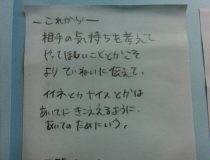 ーこれからー
相手の気持ちを考えて
やってほしいことかこそ
よりていねいに伝えて。
イイネとかナイスとかは
あいてにきこえるように。
あいてのためにいう。